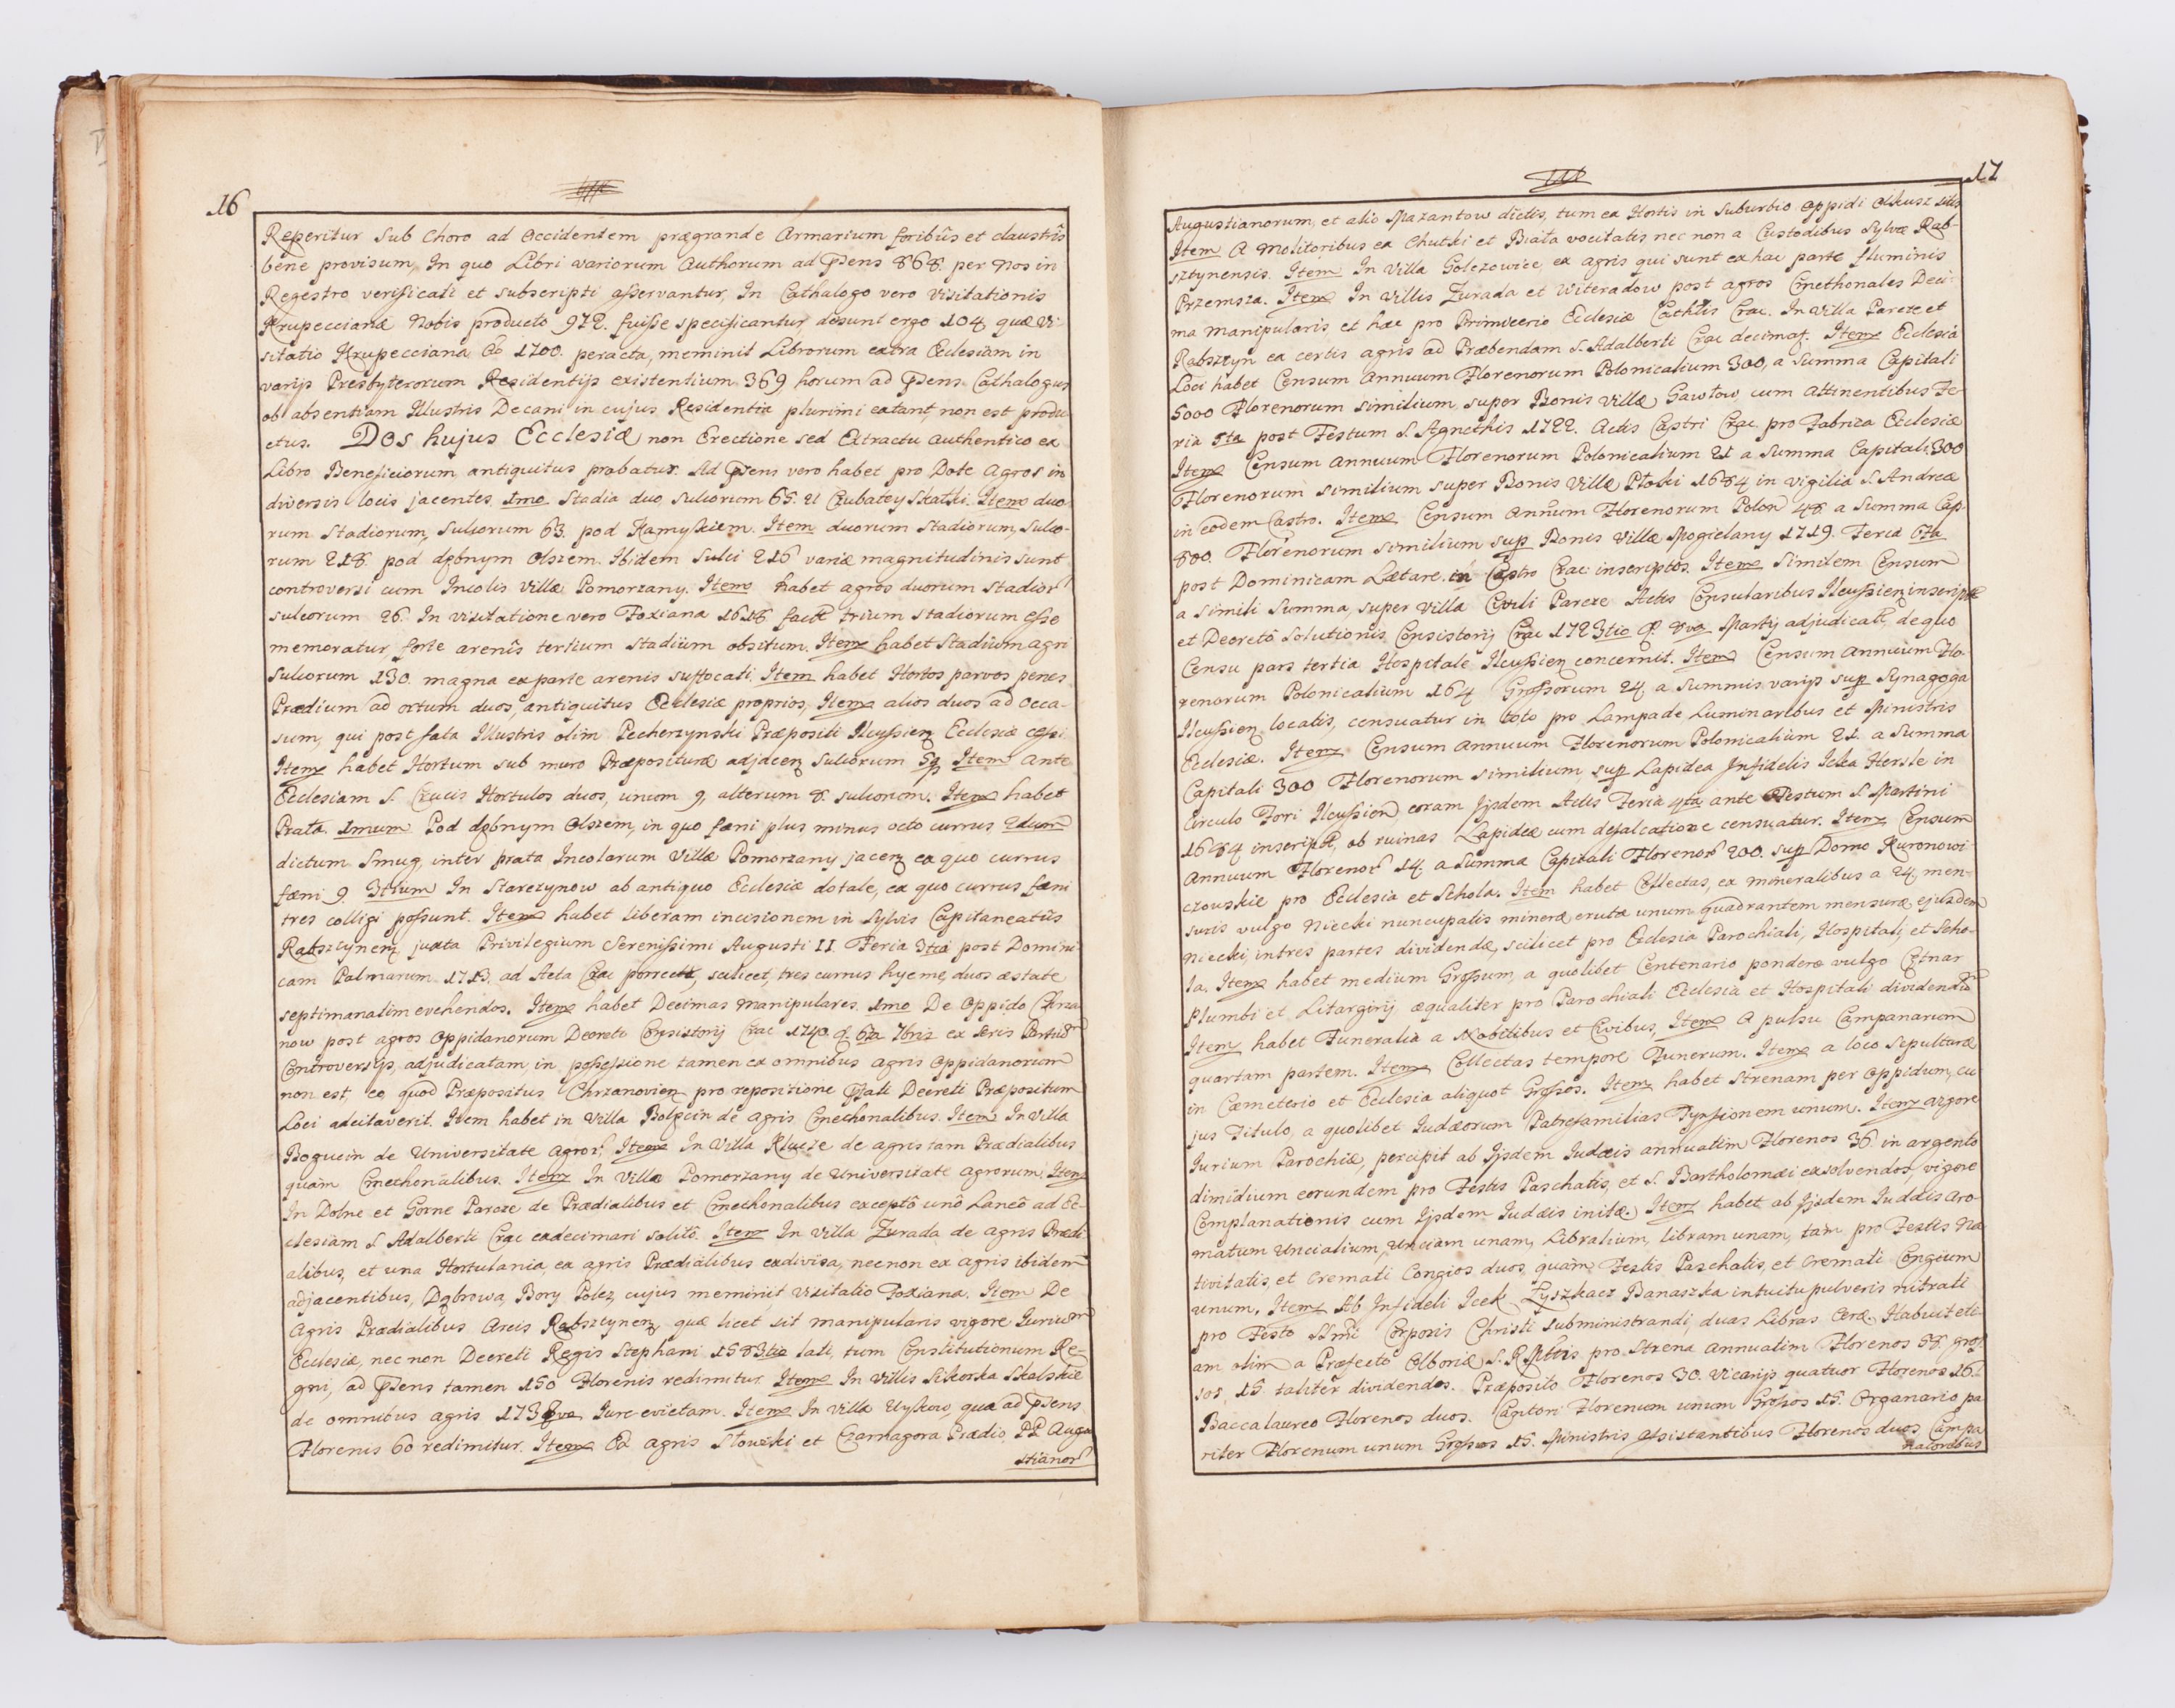 16
Reperitur sub Choro ad Occidentem prægrande Armarium foribus et claustris
bene provisum, In quo Libri variorum Authorum ad Psens 868. per Nos in
Regestro verificati et subscripti asservantur, In Cathalogo vero Visitationis
Krupeccianæ Nobis producto 972. fuisse specificantur, desunt ergo 104 quæ Vi-
sitatio Krupecciana 1700. peracta, meminit Librorum extra Ecclesiam in
varijs Presbyterorum Residentijs existentium 369 horum ad Psens Cathalogus
ob absentiam Illustris Decani in cujus Residentia plurimi extant, non est produ
ctus. Dos hujus Ecclesiæ non Erectione sed Extractu authentico ex
Libro Beneficiorum antiquitus probatur. Ad Psens vero habet pro Dote Agros in
diversis locis jacentes. 1mo. Stadia duo, sulcorum 65. U Czubatey Skałki. Item duo
rum Stadiorum, Sulcorum 63. pod Kamyskiem. Item duorum Stadiorum, sulco-
rum 218. pod dębnym Olszem. Ibidem sulci 216 variæ magnitudinis sunt
controversi cum Incolis Villæ Pomorzany. Item habet agros duorum Stadior
sulcorum 26. In visitatione vero Foxiana 1618 facta trium stadiorum esse
memoratur, forte arenis tertium Stadium obsitum. Item habet Stadium agri
Sulcorum 130. magna ex parte arenis suffocati. Item habet Hortos parvos penes
Prædium ad ortum duos, antiquitus Ecclesiæ proprios, Item alios duos ad Occa-
sum, qui post fata Illustris olim Pecherzynski Præpositi Ilcussien Ecclesiæ cessi
Item habet Hortum sub muro Præposituræ adjacen Sulcorum 59 Item ante
Ecclesiam S. Crucis Hortulos duos, unum 9, alterum 8. sulcorum. Item habet
Prata. 1mum Pod dębnym Olszem, in quo fæni plus minus octo currus 2dum
dictum Smug inter prata Incolarum Villæ Pomorzany jacen ex quo currus
fæni 9. 3tium In Starczynow ab antiquo Ecclesiæ dotale, ex quo currus fæni
tres colligi possunt. Item habet liberam incisionem in Sylvis Capitaneatus
Rabsztynen juxta Privilegium Serenissimi Augusti II. Feria 3tia post Domini
cam Palmarum 1713. ad Acta Crac porrectæ, scilicet, tres currus hyeme, duos æstate
septimanatim evehendos. Item habet Decimas manipulares. 1mo De Oppido Chrza
now post agros Oppidanorum Decreto Consistorij Crac 1740. d. 6ta 7bris ex Partium
Controversijs, adjudicatam, in possessione tamen ex omnibus agris Oppidanorum
non est, eo quod Præpositus Chrzanovien pro repositione Decreti Præpositum
Loci adcitaverit. Item habet in Villa Bolęcin de agris Cmethonalibus. Item In Villa
Bogucin de Universitate agror. Item In Villa Klucze de agris tam Prædialibus
quam Cmethonalibus. Item In Villa Pomorzany de Universitate agrorum. Item
In Dolne et Gorne Parcze de Prædialibus et Cmethonalibus excepto uno Laneo ad Ec-
clesiam S Adalberti Crac exdecimari solito. Item In Villa Zurada de agris Prædi
alibus, et una Hortulania, ex agris Prædialibus exdivisa, necnon ex agris ibidem
adjacentibus, Dąbrowa, Bory Polez, cujus meminit Visitatio Foxiana. Item De
Agris Prædialibus Arcis Rabsztynen quæ licet sit manipularis vigore Jurium
Ecclesiæ, nec non Decreti Regis Stephani 1583tio lati, tum Constitutionum Re-
gni, ad Psens tamen 150 Florenis redimitur. Item In Villis Sikorka Skalskie
de omnibus agris Jure evictam. Item In Villa Uykow, quæ ad Psens
Florenis 60 redimitur. Item Ex agris Słowiki et Czarnagora Prædio PP Augu
stianor
17
Augustianorum, et alio Mazantow dictis, tum ex Hortis in Suburbio Oppidi Olkusz sitis
Item A Molitoribus ex Chutki et Biała vocitatis nec non a Custodibus Sylvæ Rab-
sztynensis. Item In Villa Golczowice, ex agris qui sunt ex hac parte fluminis
Przemsza. Item In Villis Zurada et Witeradow post agros Cmethonales Deci-
ma manipularis et hæc pro Primicerio Ecclesiæ Cathlis Crac. In Villa Parcze et
Rabsztyn ex certis agris ad Præbendam S. Adalberti Crac decimat. Item Ecclesia
Loci habet Censum Annuum Florenorum Polonicalium 300, a Summa Capitali
5000 Florenorum similium super Bonis Villæ Gawłow cum attinentibus Fe-
ria 5ta post Festum S Agnethis 1722. Actis Castri Crac pro Fabrica Ecclesiæ
Item Censum Annuum Florenorum Polonicalium 21 a Summa Capitali 300
Florenorum similium super Bonis Villæ Płoki 1684 in Vigilia S. Andreæ
in eodem Castro. Item Censum Annum Florenorum Polon 48 a Summa Cap-
800. Florenorum similium sup Bonis Villæ Mogielany 1719. Feria 6ta
post Dominicam Lætare in Castro Crac inscriptos. Item Similem Censum
a simili Summa, super Villa Civili Parcze Actis Consularibus Ilcussien inscriptæ
et Decreto Solutionis Consistorij Crac 1723tio d. 8va Martij adjudicatæ, de quo
Censu pars tertia Hospitale Ilcussien concernit. Item Censum Annuum Flo-
renorum Polonicalium 164 Grossorum 24 a Summis varijs sup Synagoga
Ilcussien locatis, censuatur in toto pro Lampade Luminaribus et Ministris
Ecclesiæ. Item Censum Annuum Florenorum Polonicalium 21. a Summa
Capitali 300 Florenorum similium, sup Lapidea Infidelis Icka Hersle in
Circulo Fori Ilcussien coram Ijsdem Actis Feria 4ta ante Festum S Martini
1684 inscriptæ, ob ruinas Lapideæ cum defalcatione censuatur. Item Censum
Annuum Florenor 14. a Summa Capitali Florenor 200. sup Domo Kuronowi-
czowskie pro Ecclesia et Schola. Item habet Collectas, ex mineralibus a 24 men-
suris vulgo Niecki nuncupatis mineræ erutæ unum quadrantem mensuræ ejusdem
Niecki, in tres partes dividendæ, scilicet pro Ecclesia Parochiali, Hospitali, et Scho-
la. Item habet medium Grossum, a quolibet Centenario pondere vulgo Cetnar
Plumbi et Litargirij æqualiter pro Parochiali Ecclesia et Hospitali dividendum
Item habet Funeralia a Nobilibus et Civibus, Item A pulsu Campanarum
quartam partem. Item Collectas tempore Funerum. Item a loco Sepulturæ
in Cæmeterio et Ecclesia aliquot Grossos. Item habet Strenam per Oppidum, cu
jus Titulo, a quolibet Judæorum Patrefamilias Tynfionem unum. Item vigore
Jurium Parochiæ, percipit ab Ijsdem Judæis annuatim Florenos 36 in argento
dimidium eorundem pro Festis Paschatis, et S. Bartholomæi exsolvendos, vigore
Complanationis cum Ijsdem Judæis initæ. Item habet ab Ijsdem Judæis Aro-
matum Uncialium, unciam unam, Libralium, libram unam, tam pro Festis Na
tivitatis, et Cremati Congios duos quam Festis Paschatis, et Cremati Congium
unum. Item Ab Infideli Icek Łyszkacz Banaszka intuitu pulveris nitrati
pro Festo SSmi Corporis Christi subministrandi, duas Libras Ceræ. Habuit eti-
am olim a Præfecto Olboriæ S. R. Mttis pro Strena annuatim Florenos 58. gros-
sos 15. taliter dividendos. Præposito Florenos 30. Vicarijs quatuor Florenos 16.
Baccalaureo Florenos duos. Cantori Florenum unum Grossos 15. Organario pa
riter Florenum unum Grossos 15. Ministris Assistantibus Florenos duos. Campa
natoribus